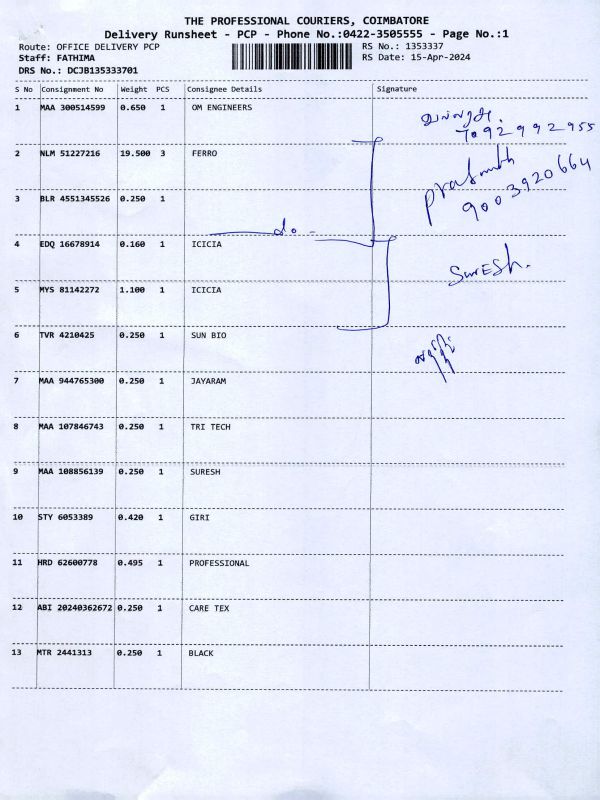 THE PROFESSIONAL COURIERS, COIMBATORE
Delivery Runsheet - PCP - Phone No.:0422-3505555 - Page No.:1
Route: OFFICE DELIVERY PCP
Staff: FATHIMA
DRS No.: DCJB135333701
RS No.: 1353337
RS Date: 15-Apr-2024
S No Consignment No Weight PCS Consignee Details Signature
1 MAA 300514599 0.650 1 OM ENGINEERS
7092992955
2 NLM 51227216 19.500 3 FERRO
Prasanth
9003920664
3 BLR 4551345526 0.250 1
do.
4 EDQ 16678914 0.160 1 ICICIA
SurESh.
5 MYS 81142272 1.100 1 ICICIA
6 TVR 4210425 0.250 1 SUN BIO
7 MAA 944765300 0.250 1 JAYARAM
8 MAA 107846743 0.250 1 TRI TECH
9 MAA 108856139 0.250 1 SURESH
10 STY 6053389 0.420 1 GIRI
11 HRD 62600778 0.495 1 PROFESSIONAL
12 ABI 20240362672 0.250 1 CARE TEX
13 MTR 2441313 0.250 1 BLACK